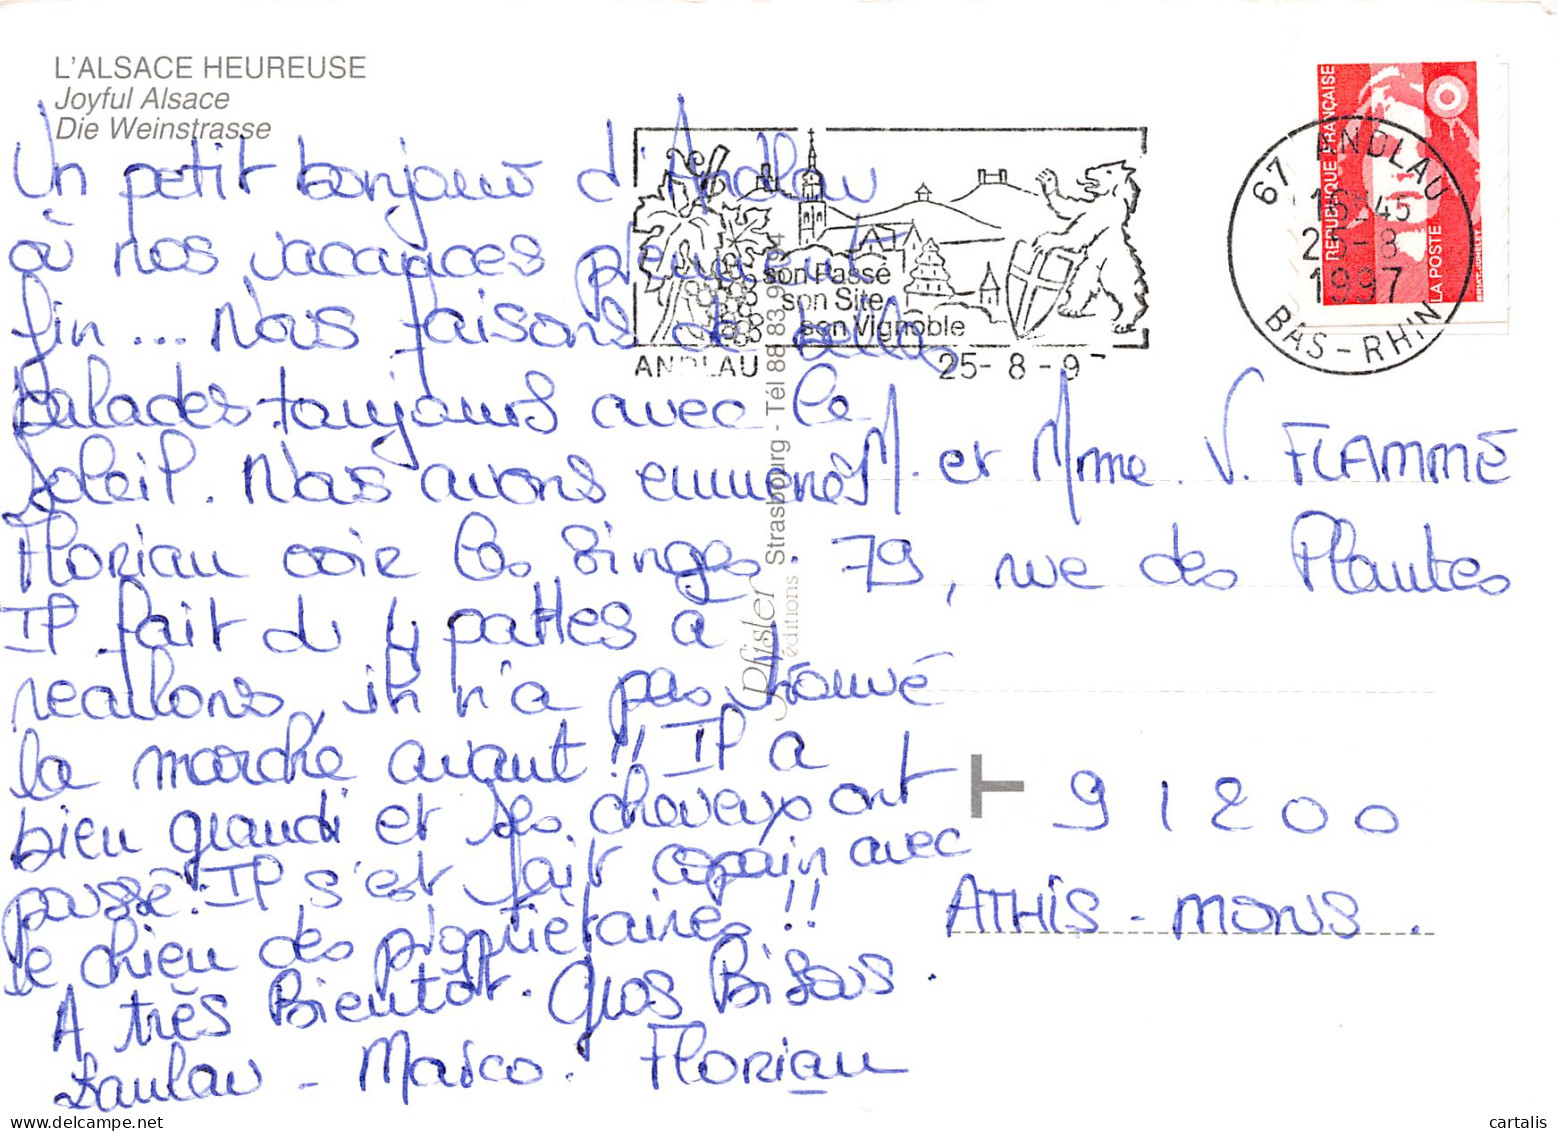 L'ALSACE HEUREUSE
Joyful Alsace
Die Weinstrasse
Un petit bonjour d'Andlau
où nos vacances prennent
fin... Nous faisons de belles
balades toujours avec le
soleil. Nous avons emmenés
Florian voir les singes.
Il fait du 4 pattes à
reculons, ih n'a pas trouvé
la marche avant!! Il a
bien grandi et ses cheveux ont
poussé. Il s'est fait copain avec
le chien des propriétaires!!
A très Bientôt. Gros Bisous.
Maïco. Florian
son Passé
son Site
son Vignoble
ANDLAU
25-8-9
67 ANDLAU
16H45
25-8
1997
BAS-RHIN
REPUBLIQUE FRANÇAISE
LA POSTE
Pfister
éditions
Strasbourg - Tél 88 83
M. et Mme. V. FLAMME
79, rue des Plantes
91200
ATHIS-MONS.
cartalis